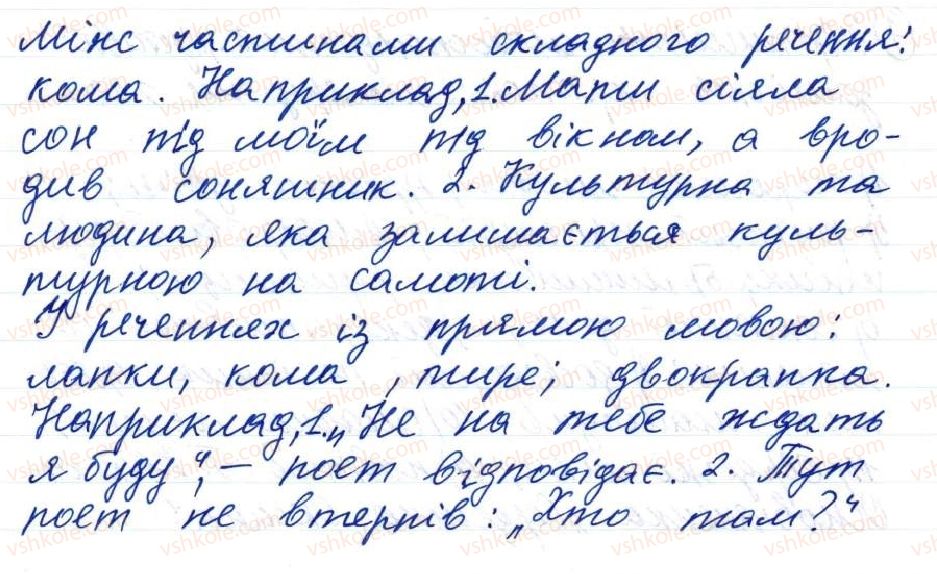 Між частинами складного речення:
кома. Наприклад, 1. Мати сіяла
сон під моїм під вікном, а вро-
див соняшник. 2. Культурна та
людина, яка залишається куль-
турною на самоті.
У реченнях із прямою мовою:
лапки, кома, тире, двокрапка.
Наприклад, 1. „Не на тебе ждать
я буду“, – поет відповідає. 2. Тут
поет не втерпів: „Хто там?“